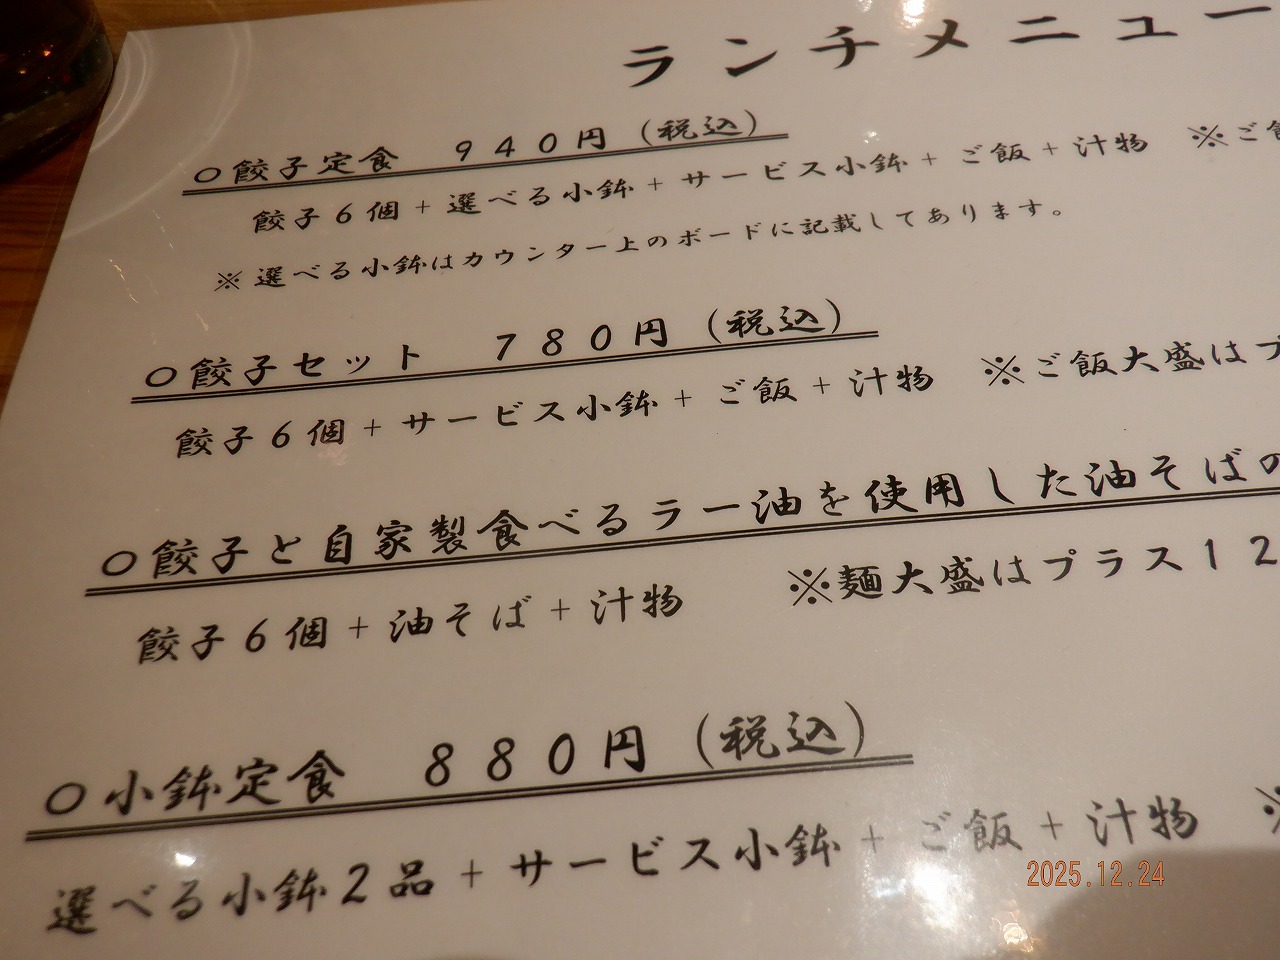 ランチメニュー
○餃子定食　９４０円（税込）
餃子６個＋選べる小鉢＋サービス小鉢＋ご飯＋汁物　※ご飯
※選べる小鉢はカウンター上のボードに記載してあります。
○餃子セット　７８０円（税込）
餃子６個＋サービス小鉢＋ご飯＋汁物　※ご飯大盛はプ
○餃子と自家製食べるラー油を使用した油そばの
餃子６個＋油そば＋汁物　※麺大盛はプラス１２
○小鉢定食　８８０円（税込）
選べる小鉢２品＋サービス小鉢＋ご飯＋汁物　※
2025.12.24